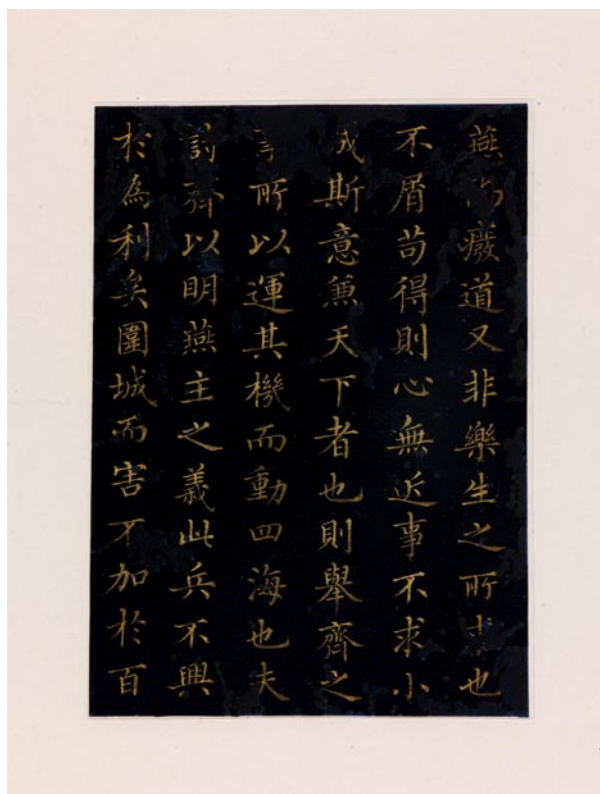 燕癈道又非樂生之所也
不屑苟得則心無近事不求小
成斯意兼天下者也則舉齊之
事所以運其機而動四海也夫
討齊以明燕主之義此兵不興
於為利矣圍城而害不加於百